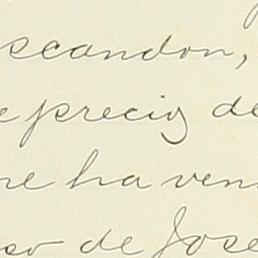 scandon,
e precio de
me ha ven
so de Jose